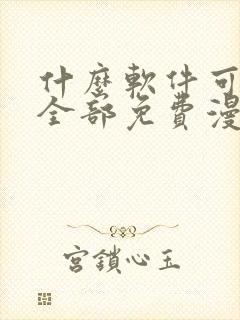 什麼軟件可
全部免費漫
宮鎖心玉